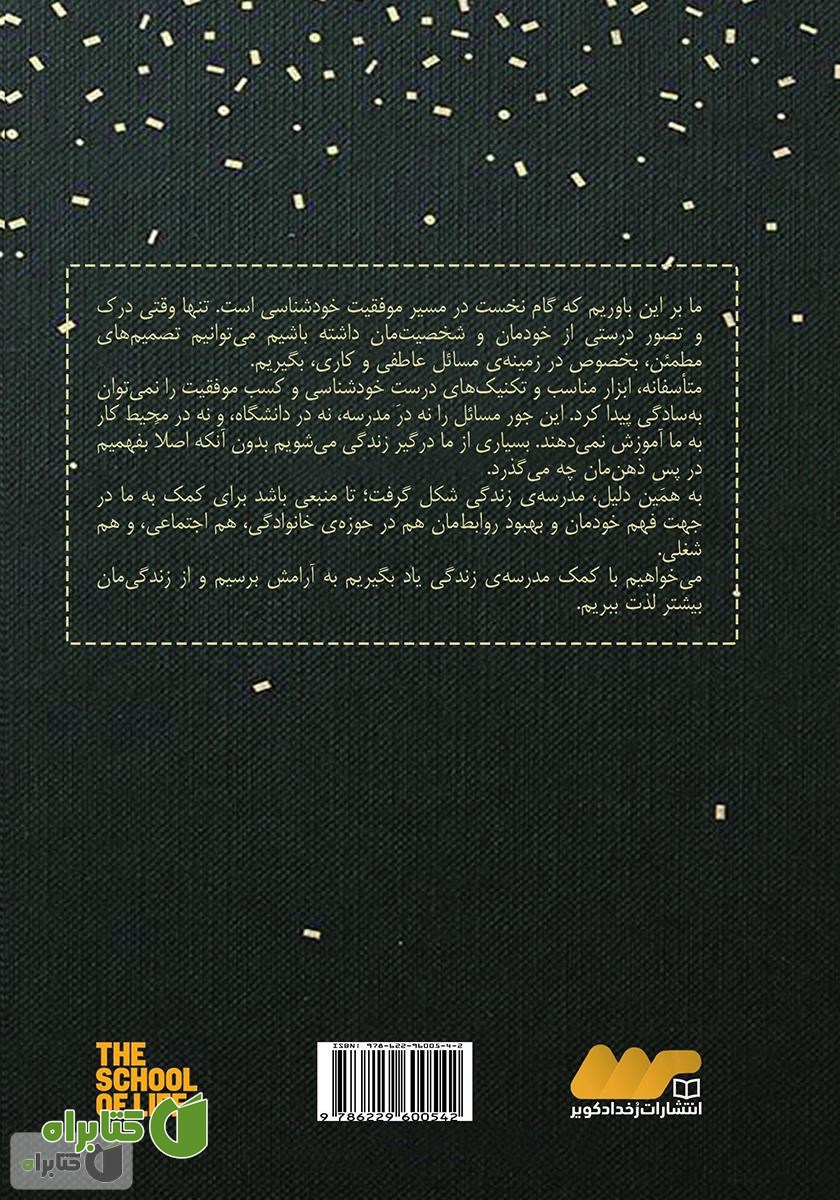 ما بر این باوریم که گام نخست در مسیر موفقیت خودشناسی است. تنها وقتی درک
و تصور درستی از خودمان و شخصیت‌مان داشته باشیم می‌توانیم تصمیم‌های
مطمئن، بخصوص در زمینه‌ی مسائل عاطفی و کاری، بگیریم.
متأسفانه، ابزار مناسب و تکنیک‌های درست خودشناسی و کسب موفقیت را نمی‌توان
به‌سادگی پیدا کرد. این جور مسائل را نه در مدرسه، نه در دانشگاه، و نه در محیط کار
به ما آموزش نمی‌دهند. بسیاری از ما درگیر زندگی می‌شویم بدون آنکه اصلاً بفهمیم
در پس ذهن‌مان چه می‌گذرد.
به همین دلیل، مدرسه‌ی زندگی شکل گرفت؛ تا منبعی باشد برای کمک به ما در
جهت فهم خودمان و بهبود روابط‌مان هم در حوزه‌ی خانوادگی، هم اجتماعی، و هم
شغلی.
می‌خواهیم با کمک مدرسه‌ی زندگی یاد بگیریم به آرامش برسیم و از زندگی‌مان
بیشتر لذت ببریم.
THE
SCHOOL
OF LIFE
ISBN: 978-622-96005-4-2
9 786229 600542
انتشارات رُخدادکویر
کتابراه
کتابراه